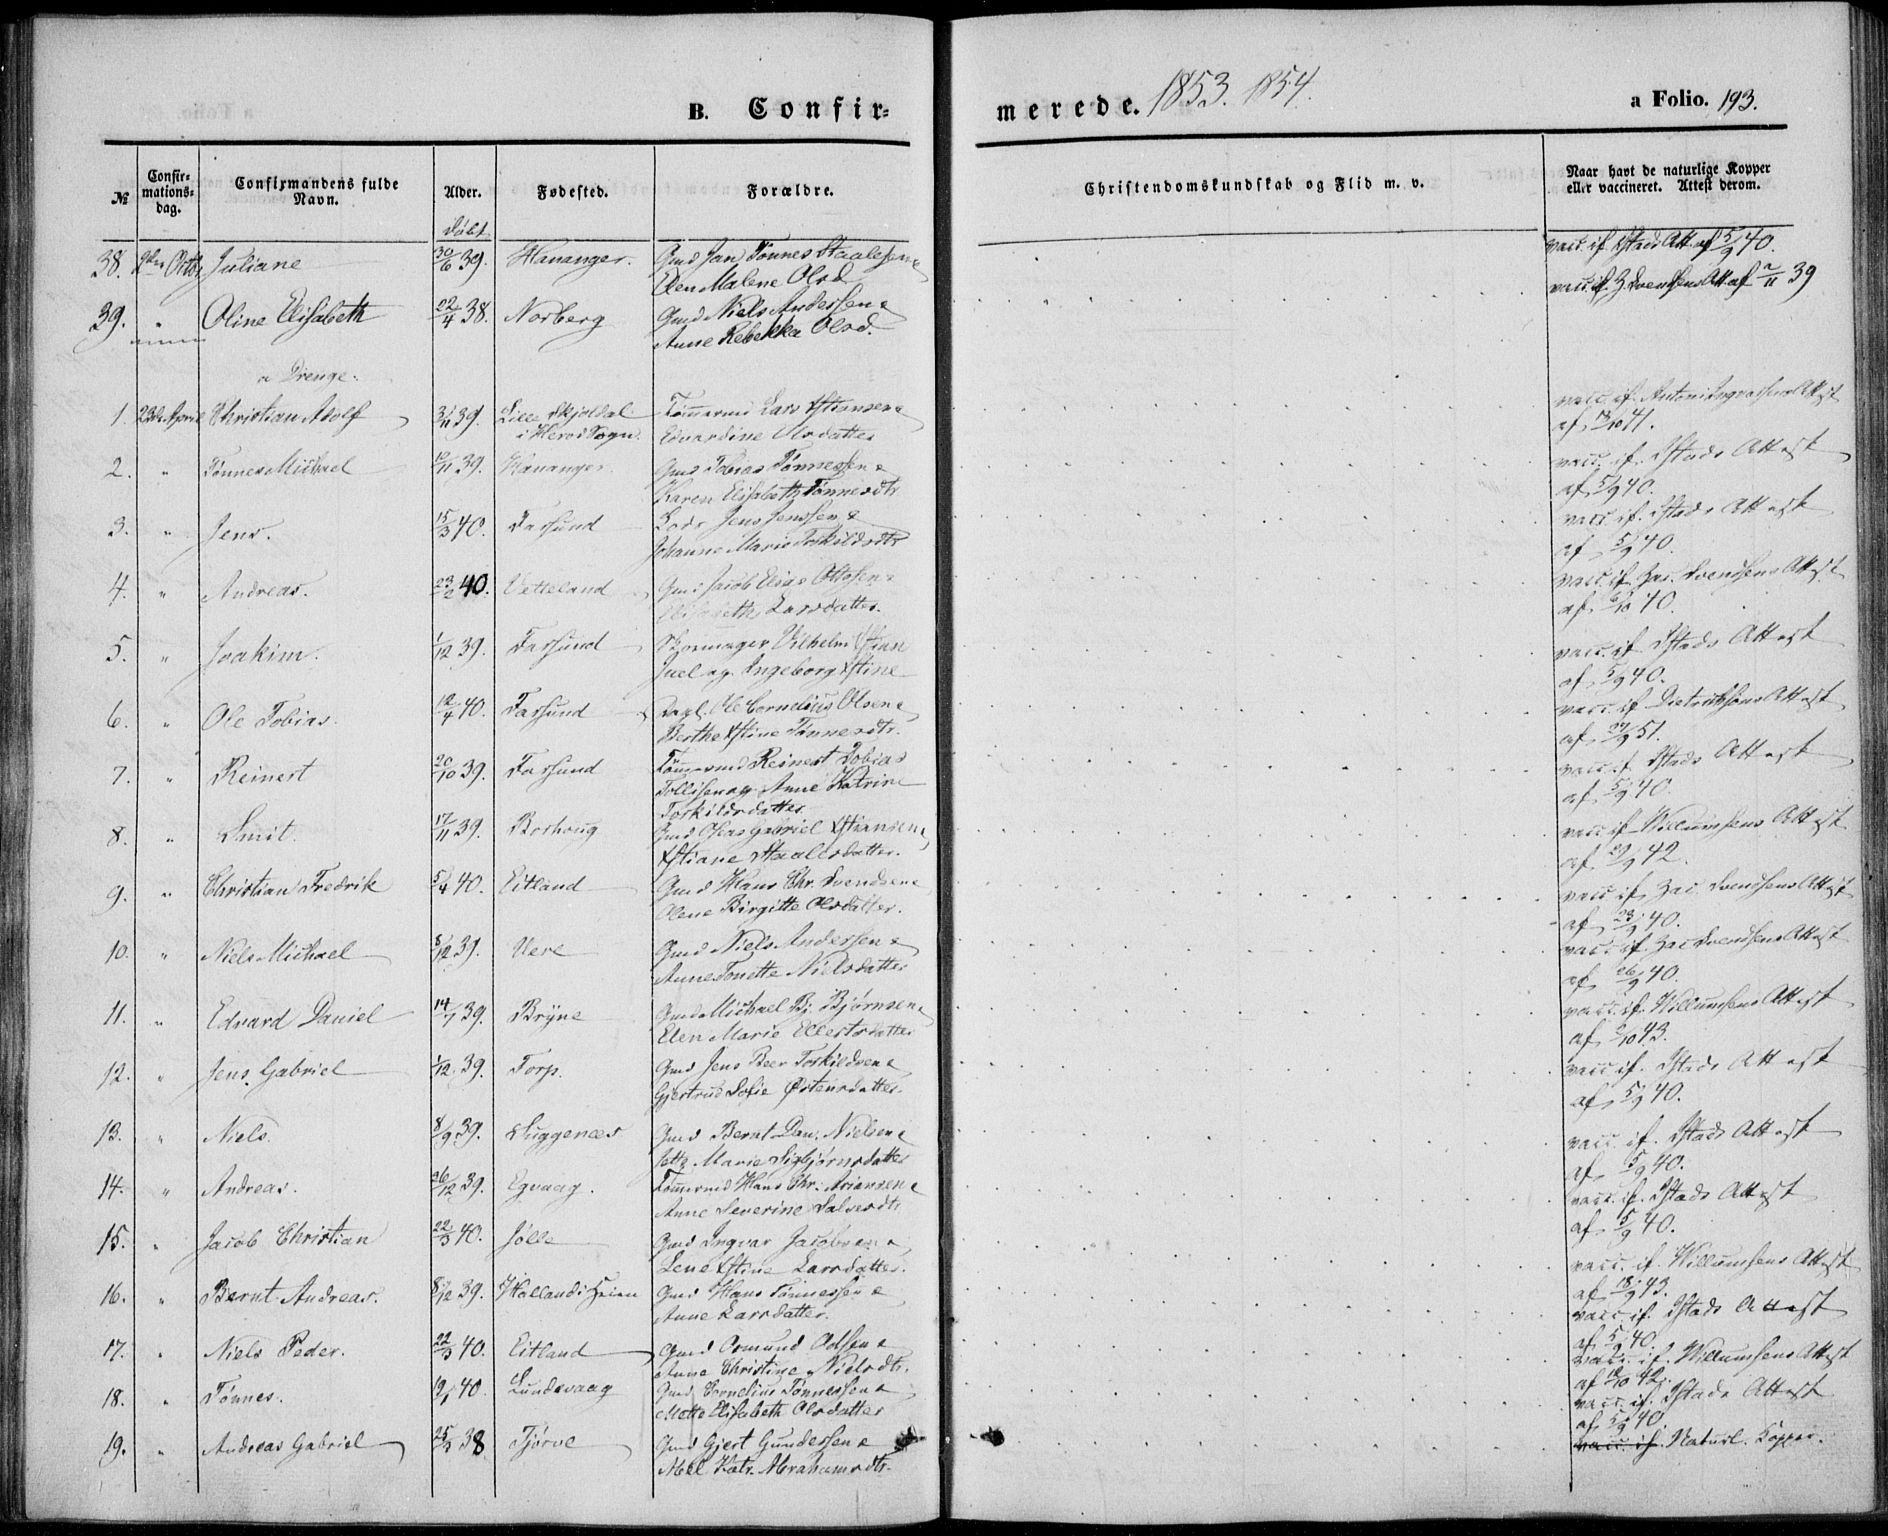 B. Confir=
merede. 1853. 1854.
a Folio. 193.
№
Confir=
mations=
dag.
Confirmandens fulde
Navn.
Alder.
Fødested.
Forældre.
Christendomskundskab og Flid m. v.
Naar havt de naturlige Kopper
eller vaccineret. Attest derom.
døbt
38. Octb. Juliane 30/6 39. Hananger. Gmd Jan Tønnes Staalesen &
Elen Malene Olsd.
vacc. if. Istads Att af 5/9 40.
39. " Oline Elisabeth 22/4 38. Norberg Gmd Niels Andersen &
Anne Rebekka Olsd.
vacc. if. Z. Svendsens Att af 2/11 39
a Drenge.
1. 23de April Christian Adolf 3/11 39. Lille Skjoldal
i Herod Sogn.
Tømmermd Lars Xstiansen &
Edvardine Olsdatter
vacc. if. Attest
af 13/10 41.
2. " Tønnes Michael 10/11 39. Hananger Gmd Tobias Tønnessen &
Karen Elisabeth Tønnesdtr
vacc. if. Istads Attest
af 5/9 40.
3. " Jens. 15/3 40. Farsund Jens Jensen &
Johanne Marie Torkildsdtr
vacc. if. Istads Attest
af 5/9 40.
4. " Andreas. 23/2 40. Vetteland Gmd Jacob Elias Ottosen &
Elisabeth Larsdatter.
vacc. if. Zac. Svendsens Attest
af 6/10 40.
5. " Joakim. 1/12 39. Farsund Skomager Vilhelm Xstian
Juel og Ingeborg Xstine
vacc. if. Istads Attest
af 5/9 40.
6. " Ole Tobias. 12/4 40. Farsund Dagl. Ole Cornelius Olsen &
Berthe Xstine Tønnesdtr.
vacc. if. Dietrichsons Attest
af 51.
7. " Reinert 20/10 39. Farsund Tømmermd Reinert Tobias
Tollisen og Anne Katrine
Torkildsdatter
vacc. if. Istads Attest
af 5/9 40.
8. " Smit. 17/11 39. Borhoug Gmd Gabriel Xstiansen &
Xstiane Staalesdatter.
vacc. if. Willumsens Attest
af 29/9 42.
9. " Christian Fredrik 5/4 40. Eitland Gmd Hans Chr. Svendsen &
Olene Birgitte Olsdatter.
vacc. if. Zac. Svendsens Attest
af 23/9 40.
10. " Niels Michael 8/12 39. Vere Gmd Niels Andersen &
Anne Tonette Nielsdatter
vacc. if. Zac Svendsens Attest
af 26/9 40.
11. " Edvard Daniel 14/7 39. Bryne Gmd Michael Bj. Bjørnsen &
Elen Marie Ellertsdatter
vacc. if. Willumsens Attest
af 2/10 43.
12. " Jens Gabriel 1/12 39. Torp. Gmd Jens Beer Torkildsen &
Gjertrud Sofie Østensdatter.
vacc. if. Istads Attest
af 5/9 40.
13. " Niels. 8/9 39. Luggenæs Gmd Bernt Dan. Nielsen &
Marie Sigbjørnsdatter
vacc. if. Istads Attest
af 5/9 40.
14. " Andreas. 26/12 39. Egvaag. Tømmermd Hans Chr. Ariansen &
Anne Severine Salvesdtr
vacc. if. Istads Attest
af 5/9 40.
15. " Jacob Christian 22/3 40. Jølle Gmd Ingvar Jacobsen &
Lene Xstine Larsdatter.
vacc. if. Willumsens Attest
af 18/9 43.
16. " Bernt Andreas. 8/12 39. Hollands Heien Gmd Hans Tønnessen &
Anne Larsdatter.
vacc. if. Istads Attest
af 5/9 40.
17. " Niels Peder. 22/3 40. Eitland Gmd Osmund Adsen &
Anne Christine Nielsdtr.
vacc. if. Willumsens Attest
af 12/10 42.
18. " Tønnes. 19/1 40. Lundevaag Gmd Cornelius Tønnessen &
Mette Elisabeth Olsdatter
vacc. if. Istads Attest
af 5/9 40.
19. " Andreas Gabriel 25/3 38 Tjørve Gmd Gjert Gundersen &
Abel Katr. Abrahamsdtr.
vacc. if. Naturl. Kopper.